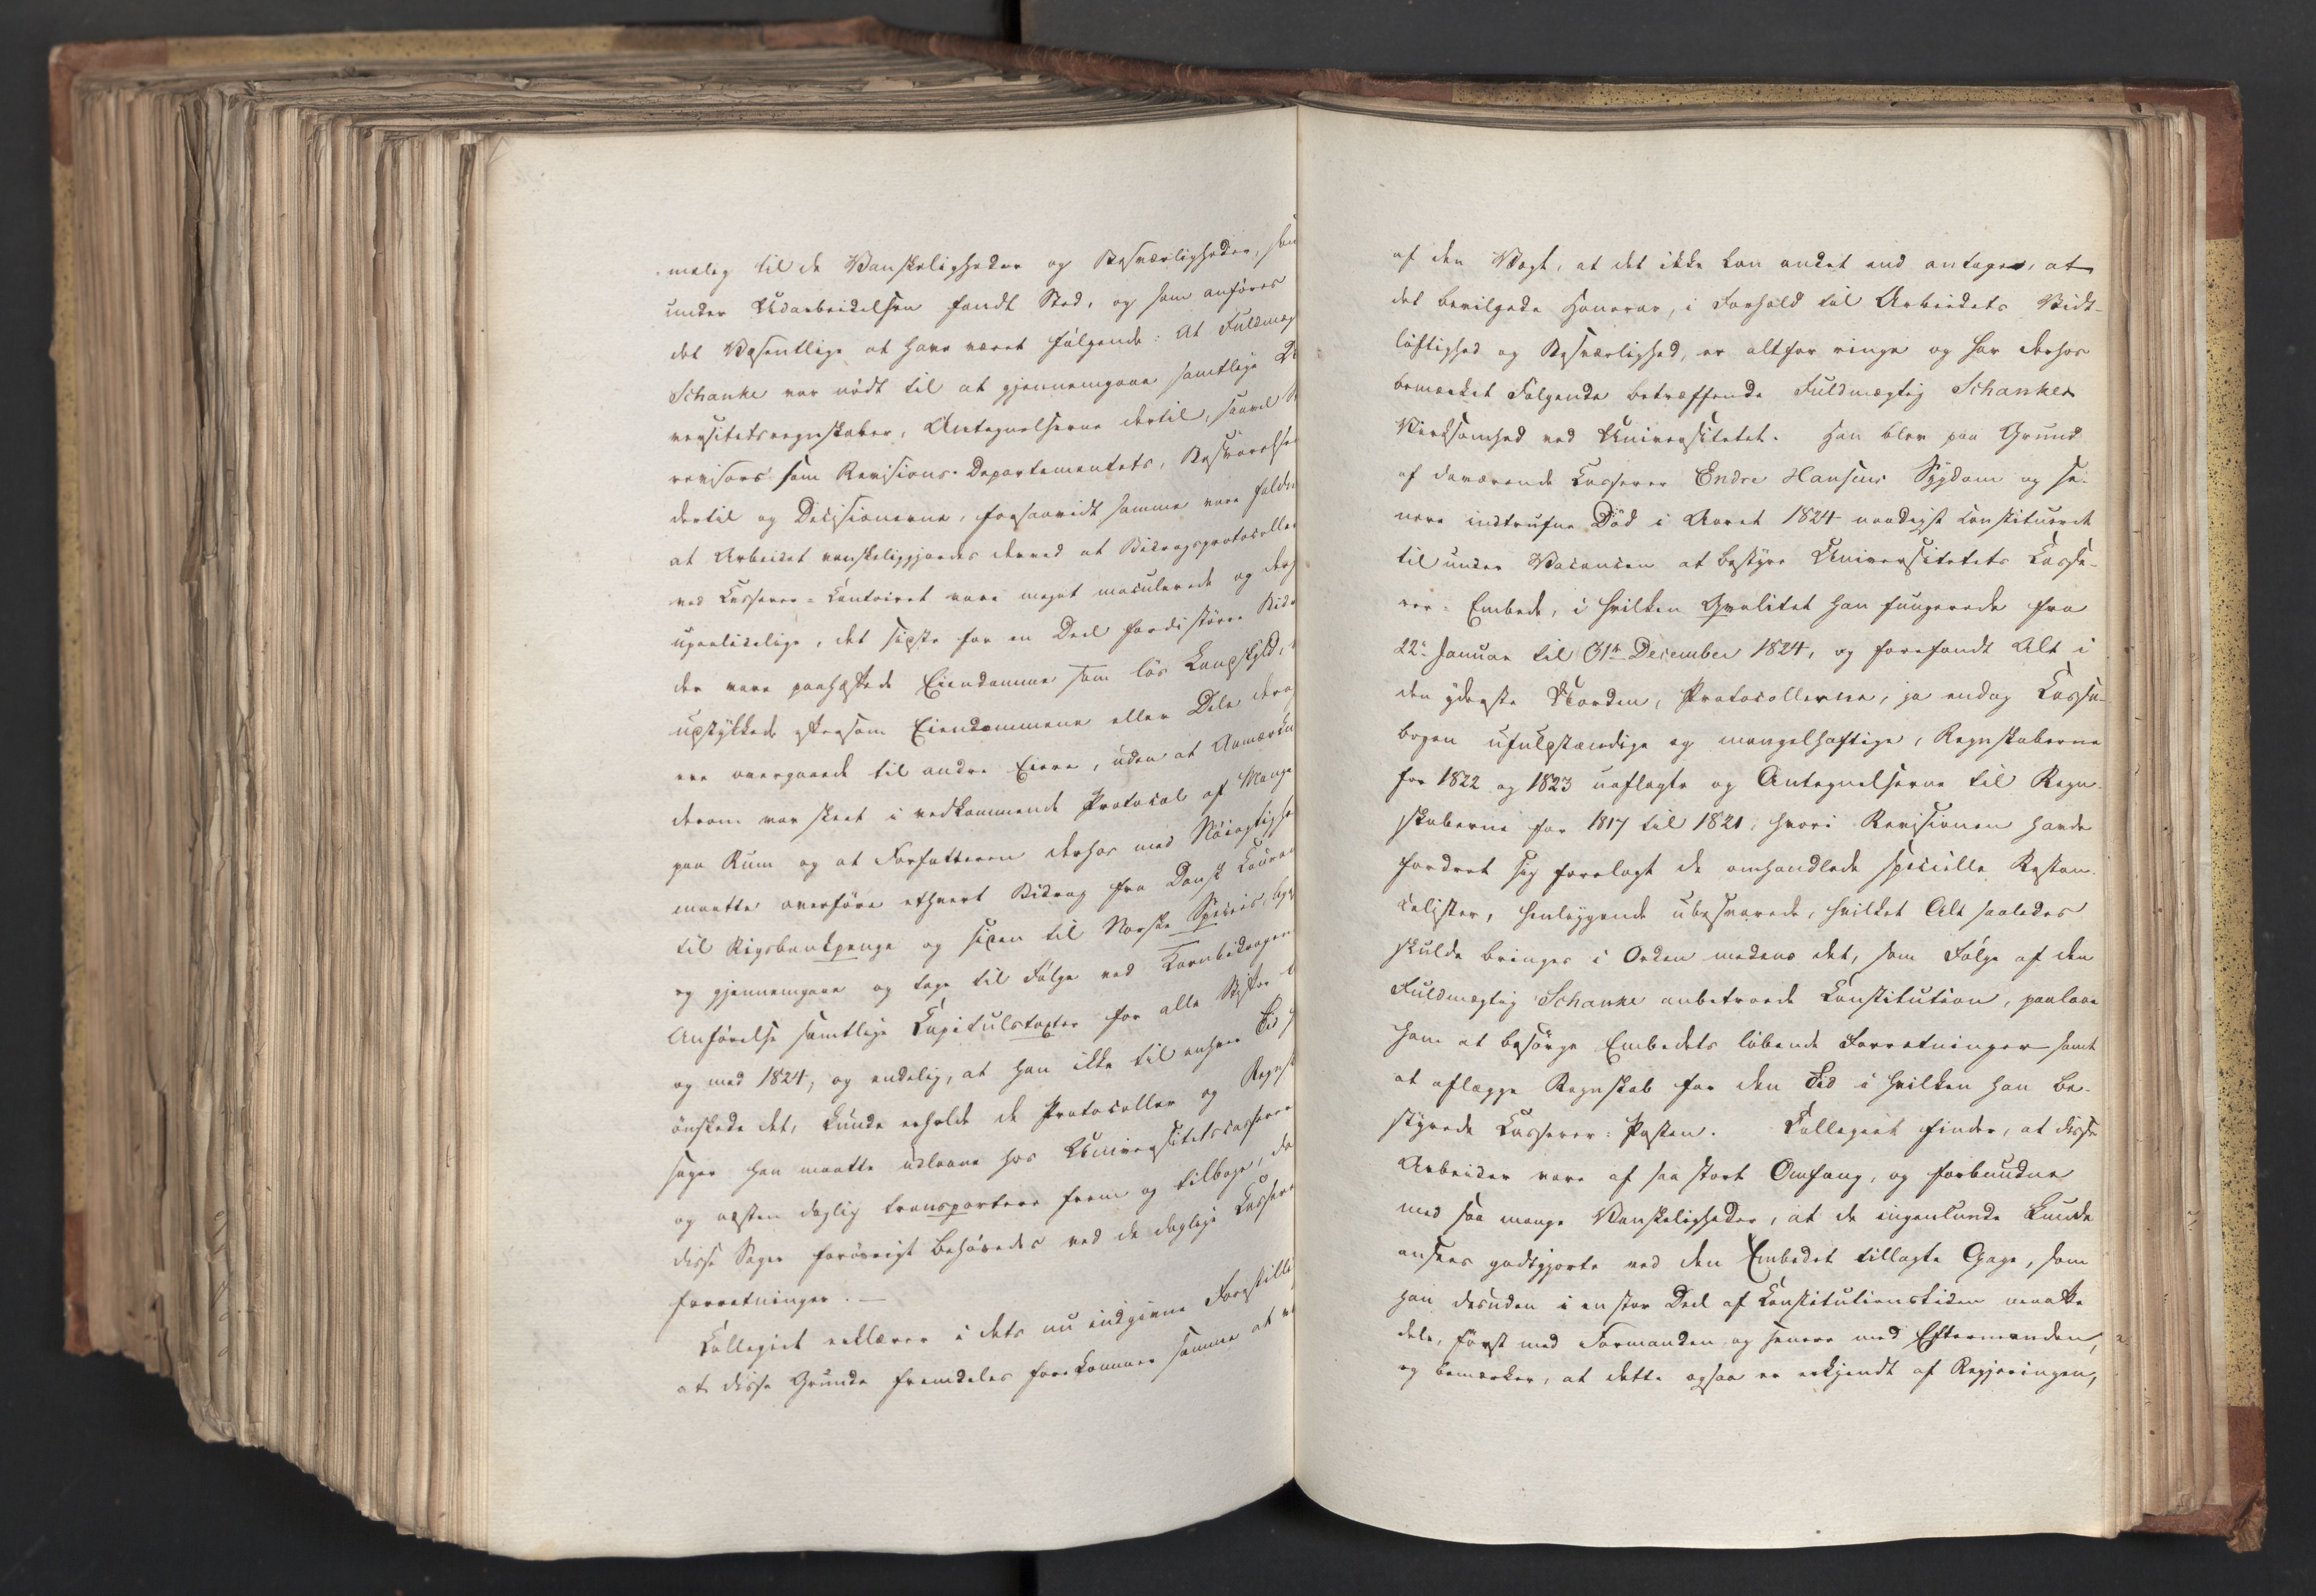 melig til de Vanskeligheder og Besværligheder, som
under Udarbeidelsen fandt Sted, og som anføres
det Væsentlige at have været følgende: At Fuldmæg
Schanke var nødt til at gjennemgaae samtlige
versitetsregnskaber, Antegnelserne dertil, saavel
revisors som Revisions-Departementets, Besvarelser
dertil og Decisionerne, forsaavidt samme vare faldne
at Arbeidet vanskeliggjordes derved at Bidragsprotocoller
ved Casserer-Contoiret vare meget maculerede og
upaalidelige, det sidste for en Deel fordi større
der vare paahæftede Eiendomme som løs Landskyld,
udstykkede eftersom Eiendommene eller Dele deraf
ere overgaaede til andre Eiere, uden at Anmærkn
derom var skeet i vedkommende Protocol af Mangel
paa Rum og at Forfatteren derhos med Nøiagtighed
maatte overføre ethvert Bidrag fra Dansk Courant
til Rigsbankpenge og siden til Norske Species,
og gjennemgaae og tage til Følge ved Kornbidragenes
Anførelse samtlige Capitulstaxter for alle Stifter
og med 1824, og endelig, at han ikke til enhver Tid
ønskede det, kunde erholde de Protocoller og Regnsk
sager han maatte udlaane hos Universitetscasserer
og næsten daglig transportere frem og tilbage, da
disse Sager forøvrigt behøvedes ved de daglige Casserer
forretninger. —
Collegiet erklærer i dets nu indgivne Forestilling
at disse Grunde fremdeles forekommer samme at
af den Vægt, at det ikke kan andet end antages, at
det bevilgede Honorar, i Forhold til Arbeidets Vidt-
løftighed og Besværlighed, er altfor ringe og har derhos
bemærket Følgende betræffende Fuldmægtig Schankes
Virksomhed ved Universitetet. Han blev paa Grund
af daværende Casserer Endre Hansens Sygdom og se-
nere indtrufne Død i Aaret 1824 naadigst constitueret
til under Vacancen at bestyre Universitetets Casse-
rer-Embede, i hvilken Qvalitet han fungerede fra
22de Januar til 31te December 1824, og forefandt Alt i
den yderste Uorden, Protocollerne, ja endog Casse-
bogen ufuldstændige og mangelhaftige, Regnskaberne
for 1822 og 1823 uaflagte og Antegnelserne til Regn-
skaberne for 1817 til 1821, hvori Revisionen havde
fordret sig forelagt de omhandlede specielle Restan-
celister, henliggende ubesvarede, hvilket Alt saaledes
skulde bringes i Orden medens det, som Følge af den
Fuldmægtig Schanke anbetroede Constitution, paalaae
ham at besørge Embedets løbende Forretninger samt
at aflægge Regnskab for den Tid i hvilken han be-
styrede Casserer-Posten. Collegiet finder, at disse
Arbeider vare af saa stort Omfang, og forbundne
med saa mange Vanskeligheder, at de ingenlunde kunde
ansees godtgjorte ved den Embedet tillagte Gage, som
han desuden i en stor Deel af Constitutionstiden maatte
dele, først med Formanden og senere med Eftermanden,
og bemærker, at dette ogsaa er erkjendt af Regjeringen,